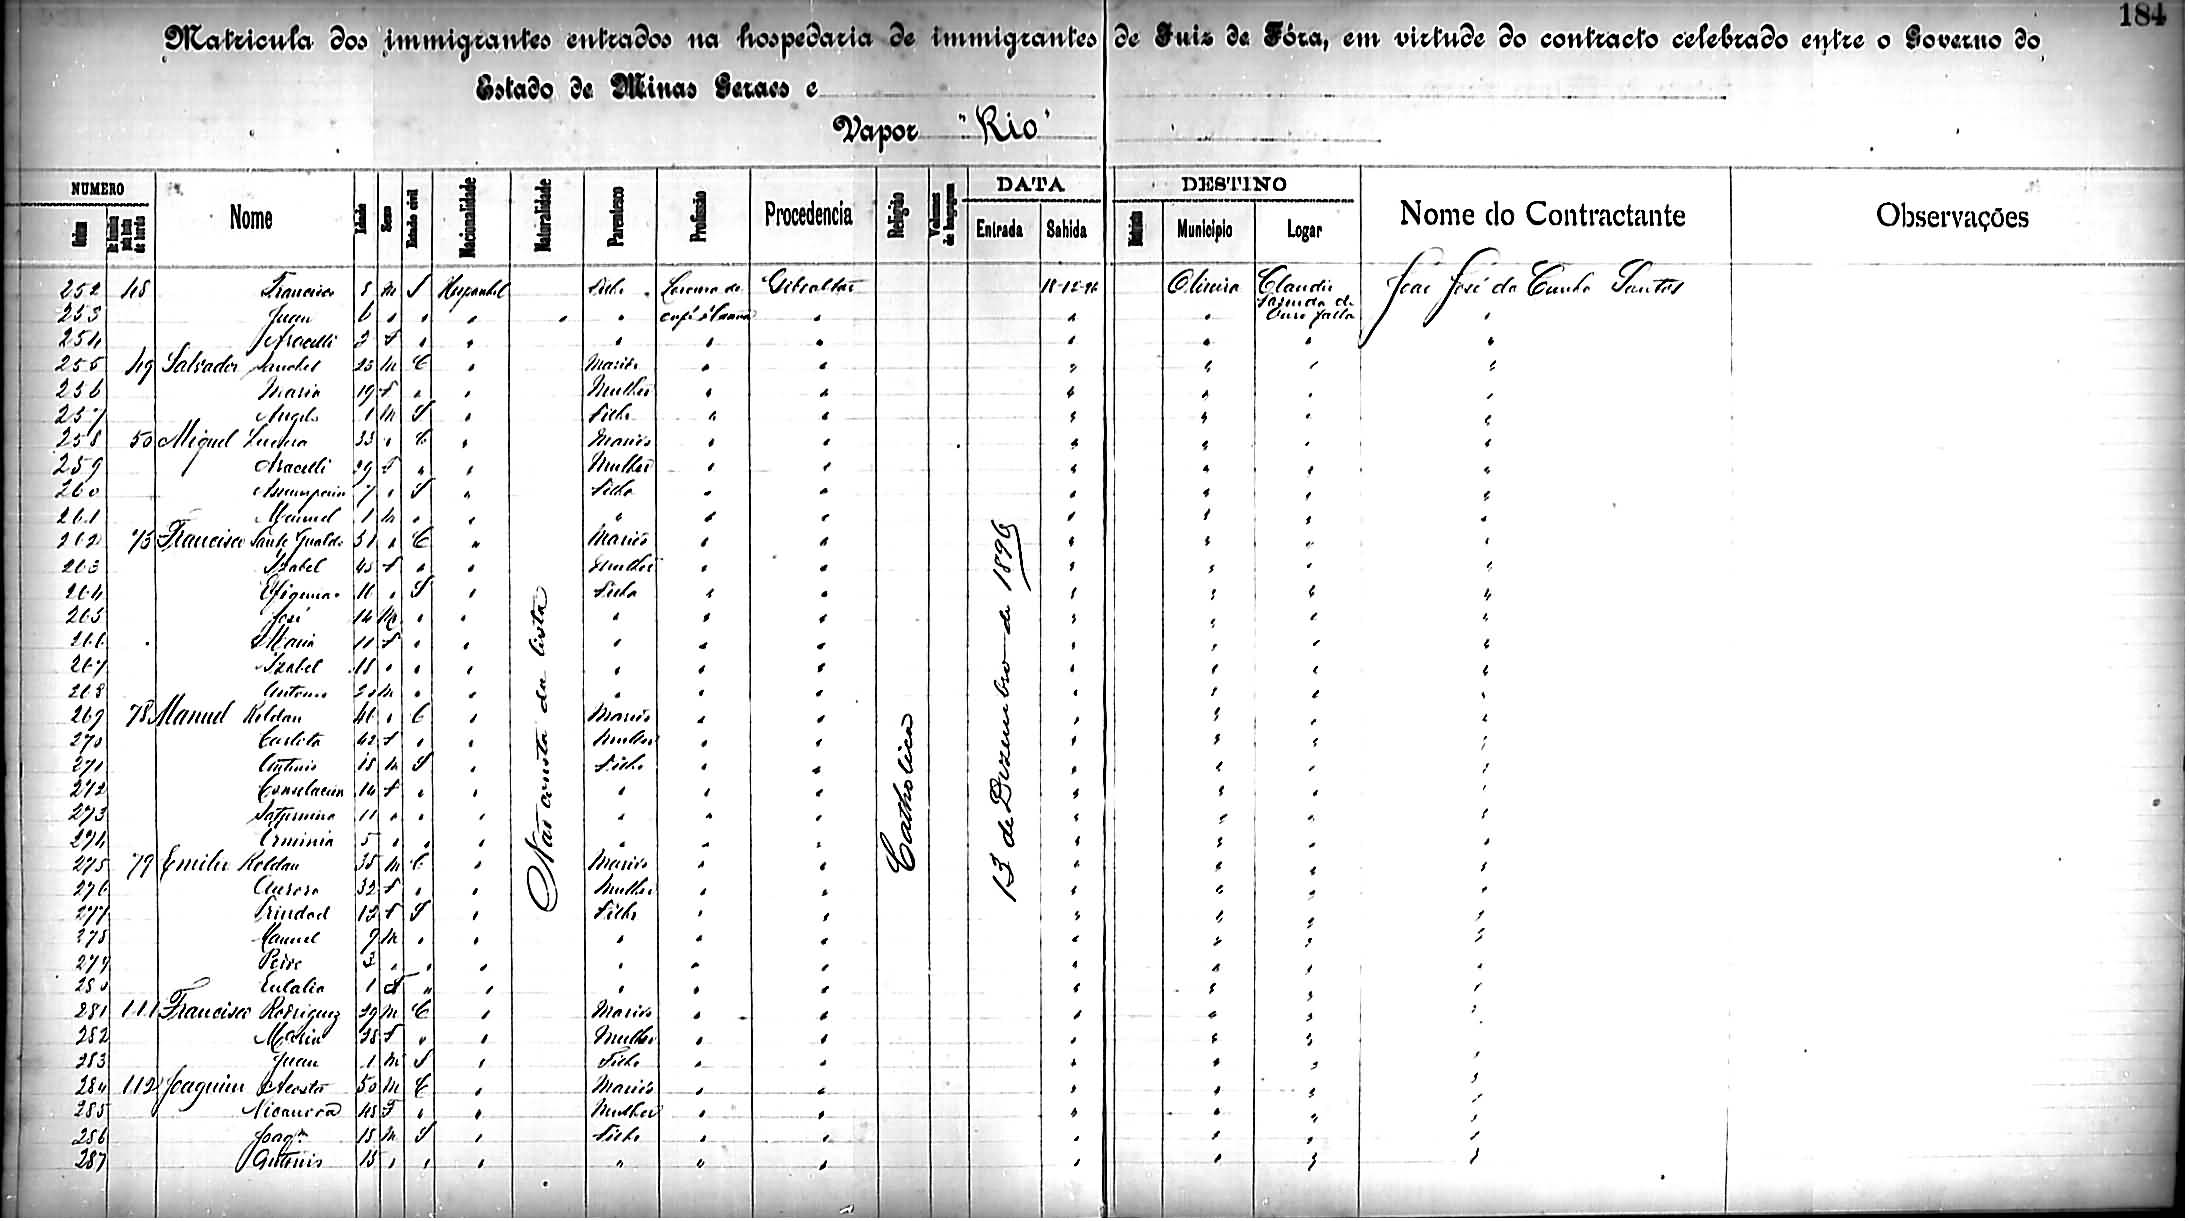 184
Matricula dos immigrantes entrados na hospedaria de immigrantes de Juiz de Fóra, em virtude do contracto celebrado entre o Governo do
Estado de Minas Geraes e
Vapor "Rio"
NUMERO DATA DESTINO
Ordem Nome Idade Sexo Estado civil Nacionalidade Naturalidade Parentesco Profissão Procedencia Religião Volumes de bagagem Entrada Sahida Municipio Logar Nome do Contractante Observações
252 48 Francisco 8 M S Hespanhol Filho Gibraltar 18-12-96 Oliveira Claudio João José da Cunha Santos
253 Juan 6 " " " " " café " " "
254 Aracelli 2 F " " " " " " " " "
255 49 Salvador Sanchel 23 M C " Marido " " " " " "
256 Maria 19 F " " Mulher " " " " " "
257 Angelo 1 M S " Filho " " " " " "
258 50 Miguel 33 " C " Marido " " " " " "
259 Aracelli 29 F " " Mulher " " " " " "
260 7 " S " Filha " " " " " "
261 Manuel 1 M " " " " " " " " "
262 75 Francisco 51 " C " Marido " " " " " "
263 Izabel 45 F " " Mulher " " " " " "
264 16 " S " Filha " " " " " "
265 José 14 M " " " " " " " " "
266 Maria 11 F " " " " " " " " "
267 Izabel 18 " " " " " " " " " "
268 Antonio M " " " " " " " " "
269 78 Manuel Roldan 46 " C " Marido " " " " " "
270 Carlota 42 F " " Mulher " " " " " "
271 Antonio 18 M S " Filho " " " " " "
272 14 F " " " " " " " " "
273 11 " " " " " " " " " "
274 Erminia 5 " " " " " " " " " "
275 79 Emilio Roldan 35 M C " Marido " " " " " "
276 Aurora 32 F " " Mulher " " " " " "
277 Trindad 12 F S " Filho " " " " " "
278 Manuel 9 M " " " " " " " " "
279 Pedro 3 " " " " " " " " " "
280 Eulalia 1 F " " " " " " " " "
281 111 Francisco Rodriguez 39 M C " Marido " " " " " "
282 Maria 38 F " " Mulher " " " " " "
283 Juan 1 M S " Filho " " " " " "
284 112 Joaquim Acosta 50 M C " Marido " " " " " "
285 Nicanora 48 F " " Mulher " " " " " "
286 Joaqm 18 M S " Filho " " " " " "
287 Antonio 15 " " " " " " " " " "
Não consta da lista
Catholica
13 de Dezembro de 1896